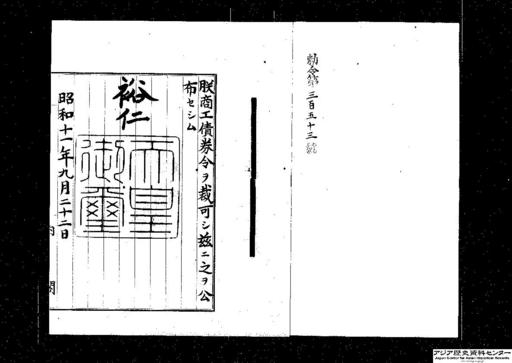 勅令第三百五十三號
朕商工債券令ヲ裁可シ茲ニ之ヲ公
布セシム
裕仁
天皇
御璽
昭和十一年九月二十二日
内閣
アジア歴史資料センター
Japan Center for Asian Historical Records